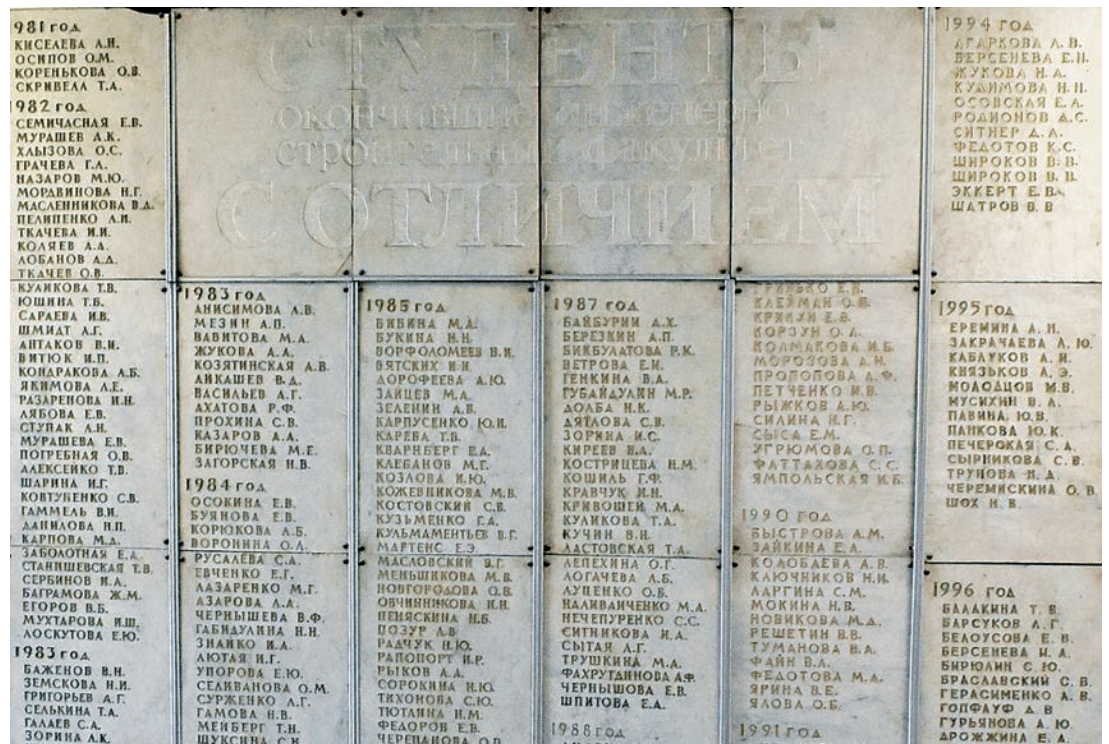 1981 год
КИСЕЛЕВА Л.Н.
ОСИПОВ О.М.
КОРЕНЬКОВА О.В.
СКРИВЕЛЛ Т.А.
1982 год
СЕМИЧАСНАЯ Е.В.
МУРАШЕВ А.К.
ХЛЫЗОВА О.С.
ГРАЧЕВА Г.Л.
НАЗАРОВ М.Ю.
МОРДВИНОВА Н.Г.
МАСЛЕННИКОВА В.Д.
ПЕЛИПЕНКО Л.И.
ТКАЧЕВА И.И.
КОЛЯЕВ А.А.
ЛОБАНОВ А.Д.
ТКАЧЕВ О.В.
КУЛИКОВА Т.В.
ЮШИНА Т.Б.
САРАЕВА И.В.
ШМИДТ Л.Г.
АНТАКОВ В.И.
ВИТЮК И.П.
КОНДРАКОВА Л.Б.
ЯКИМОВА Л.Е.
РАЗАРЕНОВА И.Н.
ЛЯБОВА Е.В.
СТУПАК Л.Н.
МУРАШЕВА Е.В.
ПОГРЕБНАЯ О.В.
АЛЕКСЕЙКО Т.В.
ШАРИНА И.Г.
КОВТУНЕНКО С.В.
ГАММЕЛЬ В.И.
ДАНИЛОВА Н.П.
КАРПОВА М.Д.
ЗАБОЛОТНАЯ Е.А.
СТАНИШЕВСКАЯ Т.В.
СЕРБИНОВ И.А.
БАГРАМОВА Ж.М.
ЕГОРОВ В.Б.
МУХТАРОВА И.Ш.
ЛОСКУТОВА Е.Ю.
1983 год
БАЖЕНОВ В.Н.
ЗЕМСКОВА Н.И.
ГРИГОРЬЕВ А.Г.
СЕЛЬКИНА Т.А.
ГАЛАЕВ С.А.
ЗОРИНА Л.К.
СТУДЕНТЫ
окончившие инженерно
строительный факультет
С ОТЛИЧИЕМ
1983 год
АНИСИМОВА Л.В.
МЕЗИН А.П.
ВАВИТОВА М.А.
ЖУКОВА А.А.
КОЗЯТИНСКАЯ А.В.
ЛИКАШЕВ В.Д.
ВАСИЛЬЕВ А.Г.
АХАТОВА Р.Ф.
ПРОХИНА С.В.
КАЗАРОВ А.А.
БИРЮЧЕВА М.Е.
ЗАГОРСКАЯ Н.В.
1984 год
ОСОКИНА Е.В.
БУЯНОВА Е.В.
КОРЮКОВА Л.Б.
ВОРОНИНА О.Л.
РУСАЛЕВА С.А.
ЕВЧЕНКО Е.Г.
ЛАЗАРЕНКО М.Г.
АЗАРОВА Л.А.
ЧЕРНЫШЕВА В.Ф.
ГАБИДУЛИНА Н.Н.
ЗНАЙКО И.А.
ЛЮТАЯ И.Г.
УПОРОВА Е.Ю.
СЕЛИВАНОВА О.М.
СУРЖЕНКО Л.Г.
ГАМОВА Н.В.
МЕЙБЕРГ Т.Н.
ШУКСИНА С.Н.
1985 год
БИБИНА М.А.
БУКИНА Н.Н.
ВОРФОЛОМЕЕВ В.И.
ВЯТСКИХ И.Н.
ДОРОФЕЕВА А.Ю.
ЗАЙЦЕВ М.А.
ЗЕЛЕНИН А.В.
КАРПУСЕНКО Ю.И.
КАРЕВА Т.В.
КВАРНБЕРГ Е.А.
КЛЕБАНОВ М.Г.
КОЗЛОВА И.Ю.
КОЖЕВНИКОВА М.В.
КОСТОВСКИЙ С.В.
КУЗЬМЕНКО Г.А.
КУЛЬМАМЕНТЬЕВ В.Г.
МАРТЕНС Е.Э.
МАСЛОВСКИЙ В.Г.
МЕНЬШИКОВА М.В.
НОВГОРОДОВА О.В.
ОВЧИННИКОВА И.Н.
ПЕНЯСКИНА Н.Б.
ПОЗУР Л.В
РАДЧУК Н.Ю.
РАПОПОРТ И.Р.
РЫКОВ А.А.
СОРОКИНА Н.Ю.
ТИХОНОВА С.Ю.
ТЮТЛИНА Н.М.
ФЕДОРОВ Е.В.
ЧЕРЕПАНОВА О.П.
1987 год
БАЙБУРИН А.Х.
БЕРЕЗКИН А.П.
БИКБУЛАТОВА Р.К.
ВЕТРОВА Е.И.
ГЕНКИНА В.А.
ГУБАЙДУЛИН М.Р.
ДОЛБА Н.К.
ДЯТЛОВА С.В.
ЗОРИНА И.С.
КИРЕЕВ Н.А.
КОСТРИЦЕВА Н.М.
КОШИЛЬ Г.Ф.
КРАВЧУК И.Н.
КРИВОШЕЙ М.А.
КУЛИКОВА Т.А.
КУЧИН В.Н.
ЛАСТОВСКАЯ Т.А.
ЛЕПЕХИНА О.Г.
ЛОГАЧЕВА Л.Б.
ЛУЦЕНКО О.Б.
НАЛИВАЙЧЕНКО М.А.
НЕЧЕПУРЕНКО С.С.
СИТНИКОВА И.А.
СЫТАЯ Л.Г.
ТРУШКИНА М.А.
ФАХРУТДИНОВА А.Ф.
ЧЕРНЫШОВА Е.В.
ШПИТОВА Е.А.
1988 год
ГРИНЬКО Е.Н.
КЛЕЙМАН О.В.
КРИКУН Е.В.
КОРЗУН О.А.
КОЛМАКОВА И.Б.
МОРОЗОВА А.Н.
ПРОПОПОВА Л.Ф.
ПЕТЧЕНКО И.В.
РЫЖКОВ А.Ю.
СИЛИНА И.Г.
СЫСА Е.М.
УГРЮМОВА О.П.
ФАТТАХОВА С.С.
ЯМПОЛЬСКАЯ И.Б.
1990 год
БЫСТРОВА А.М.
ЗАЙКИНА Е.А.
КОЛОБАЕВА А.В.
КЛЮЧНИКОВ Н.И.
ЛАРГИНА С.М.
МОКИНА Н.В.
НОВИКОВА М.Д.
РЕШЕТИН В.В.
ТУМАНОВА Н.А.
ФАЙН В.А.
ФЕДОТОВА М.А.
ЯРИНА В.Е.
ЯЛОВА О.Б.
1991 год
1994 год
АГАРКОВА А. В.
БЕРСЕНЕВА Е.Н.
ЖУКОВА Н.А.
КУДИМОВА Н.Н.
ОСОВСКАЯ Е.А.
РОДИОНОВ Д.С.
СИТНЕР Д.А.
ФЕДОТОВ К.С.
ШИРОКОВ В.В.
ШИРОКОВ В.В.
ЭККЕРТ Е.В.
ШАТРОВ В.В
1995 год
ЕРЕМИНА А.Н.
ЗАКРАЧАЕВА Л.Ю.
КАБЛУКОВ А.И.
КНЯЗЬКОВ А.Э.
МОЛОДЦОВ М.В.
МУСИХИН В.А.
ПАВИНА Ю.В.
ПАНКОВА Ю.К.
ПЕЧЕРСКАЯ С.А.
СЫРНИКОВА С.В.
ТРУНОВА Н.Д.
ЧЕРЕМИСКИНА О.В
ШОХ Н.В.
1996 год
БАЛАКИНА Т.В.
БАРСУКОВ А.Г.
БЕЛОУСОВА Е.В.
БЕРСЕНЕВА И.А.
БИРЮЛИН С.Ю.
БРАСЛАВСКИЙ С.В.
ГЕРАСИМЕНКО А.В.
ГОПФАУФ Д.В
ГУРЬЯНОВА А.Ю.
ДРОЖЖИНА Е.А.